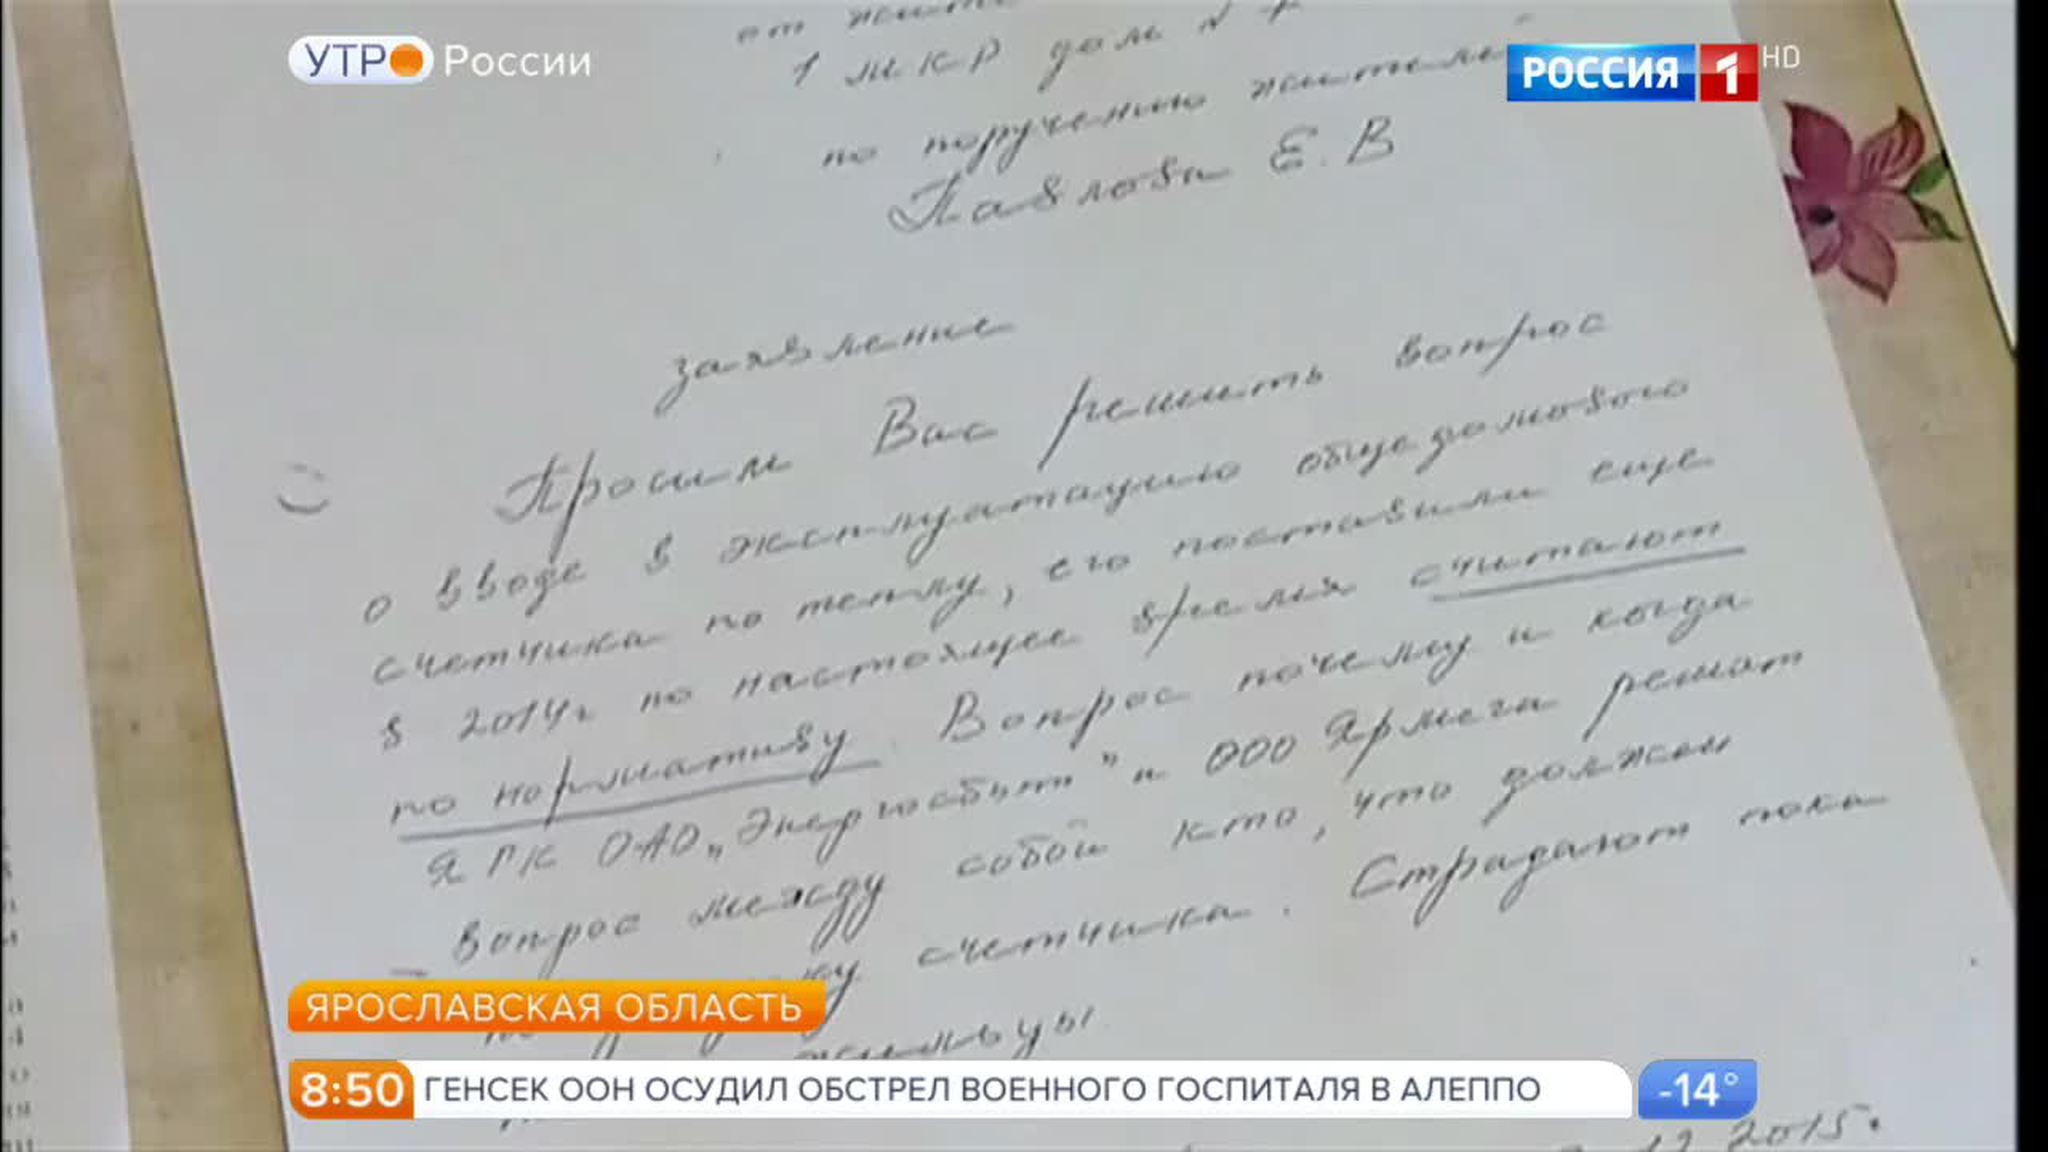 УТРО России
РОССИЯ 1 HD
от
1 мкр дом №
по поручению жителей
Павлова Е. В
заявление
Просим Вас решить вопрос
о вводе в эксплуатацию общедомового
счетчика по теплу, его поставили еще
в 2014г по настоящее время считают
по нормативу. Вопрос почему и когда
ЯГК ОАО „Энергосбыт" и ООО Ярмега решат
вопрос между собой кто, что должен
счетчика. Страдают пока
жильцы
12 2015г.
ЯРОСЛАВСКАЯ ОБЛАСТЬ
8:50 ГЕНСЕК ООН ОСУДИЛ ОБСТРЕЛ ВОЕННОГО ГОСПИТАЛЯ В АЛЕППО -14°